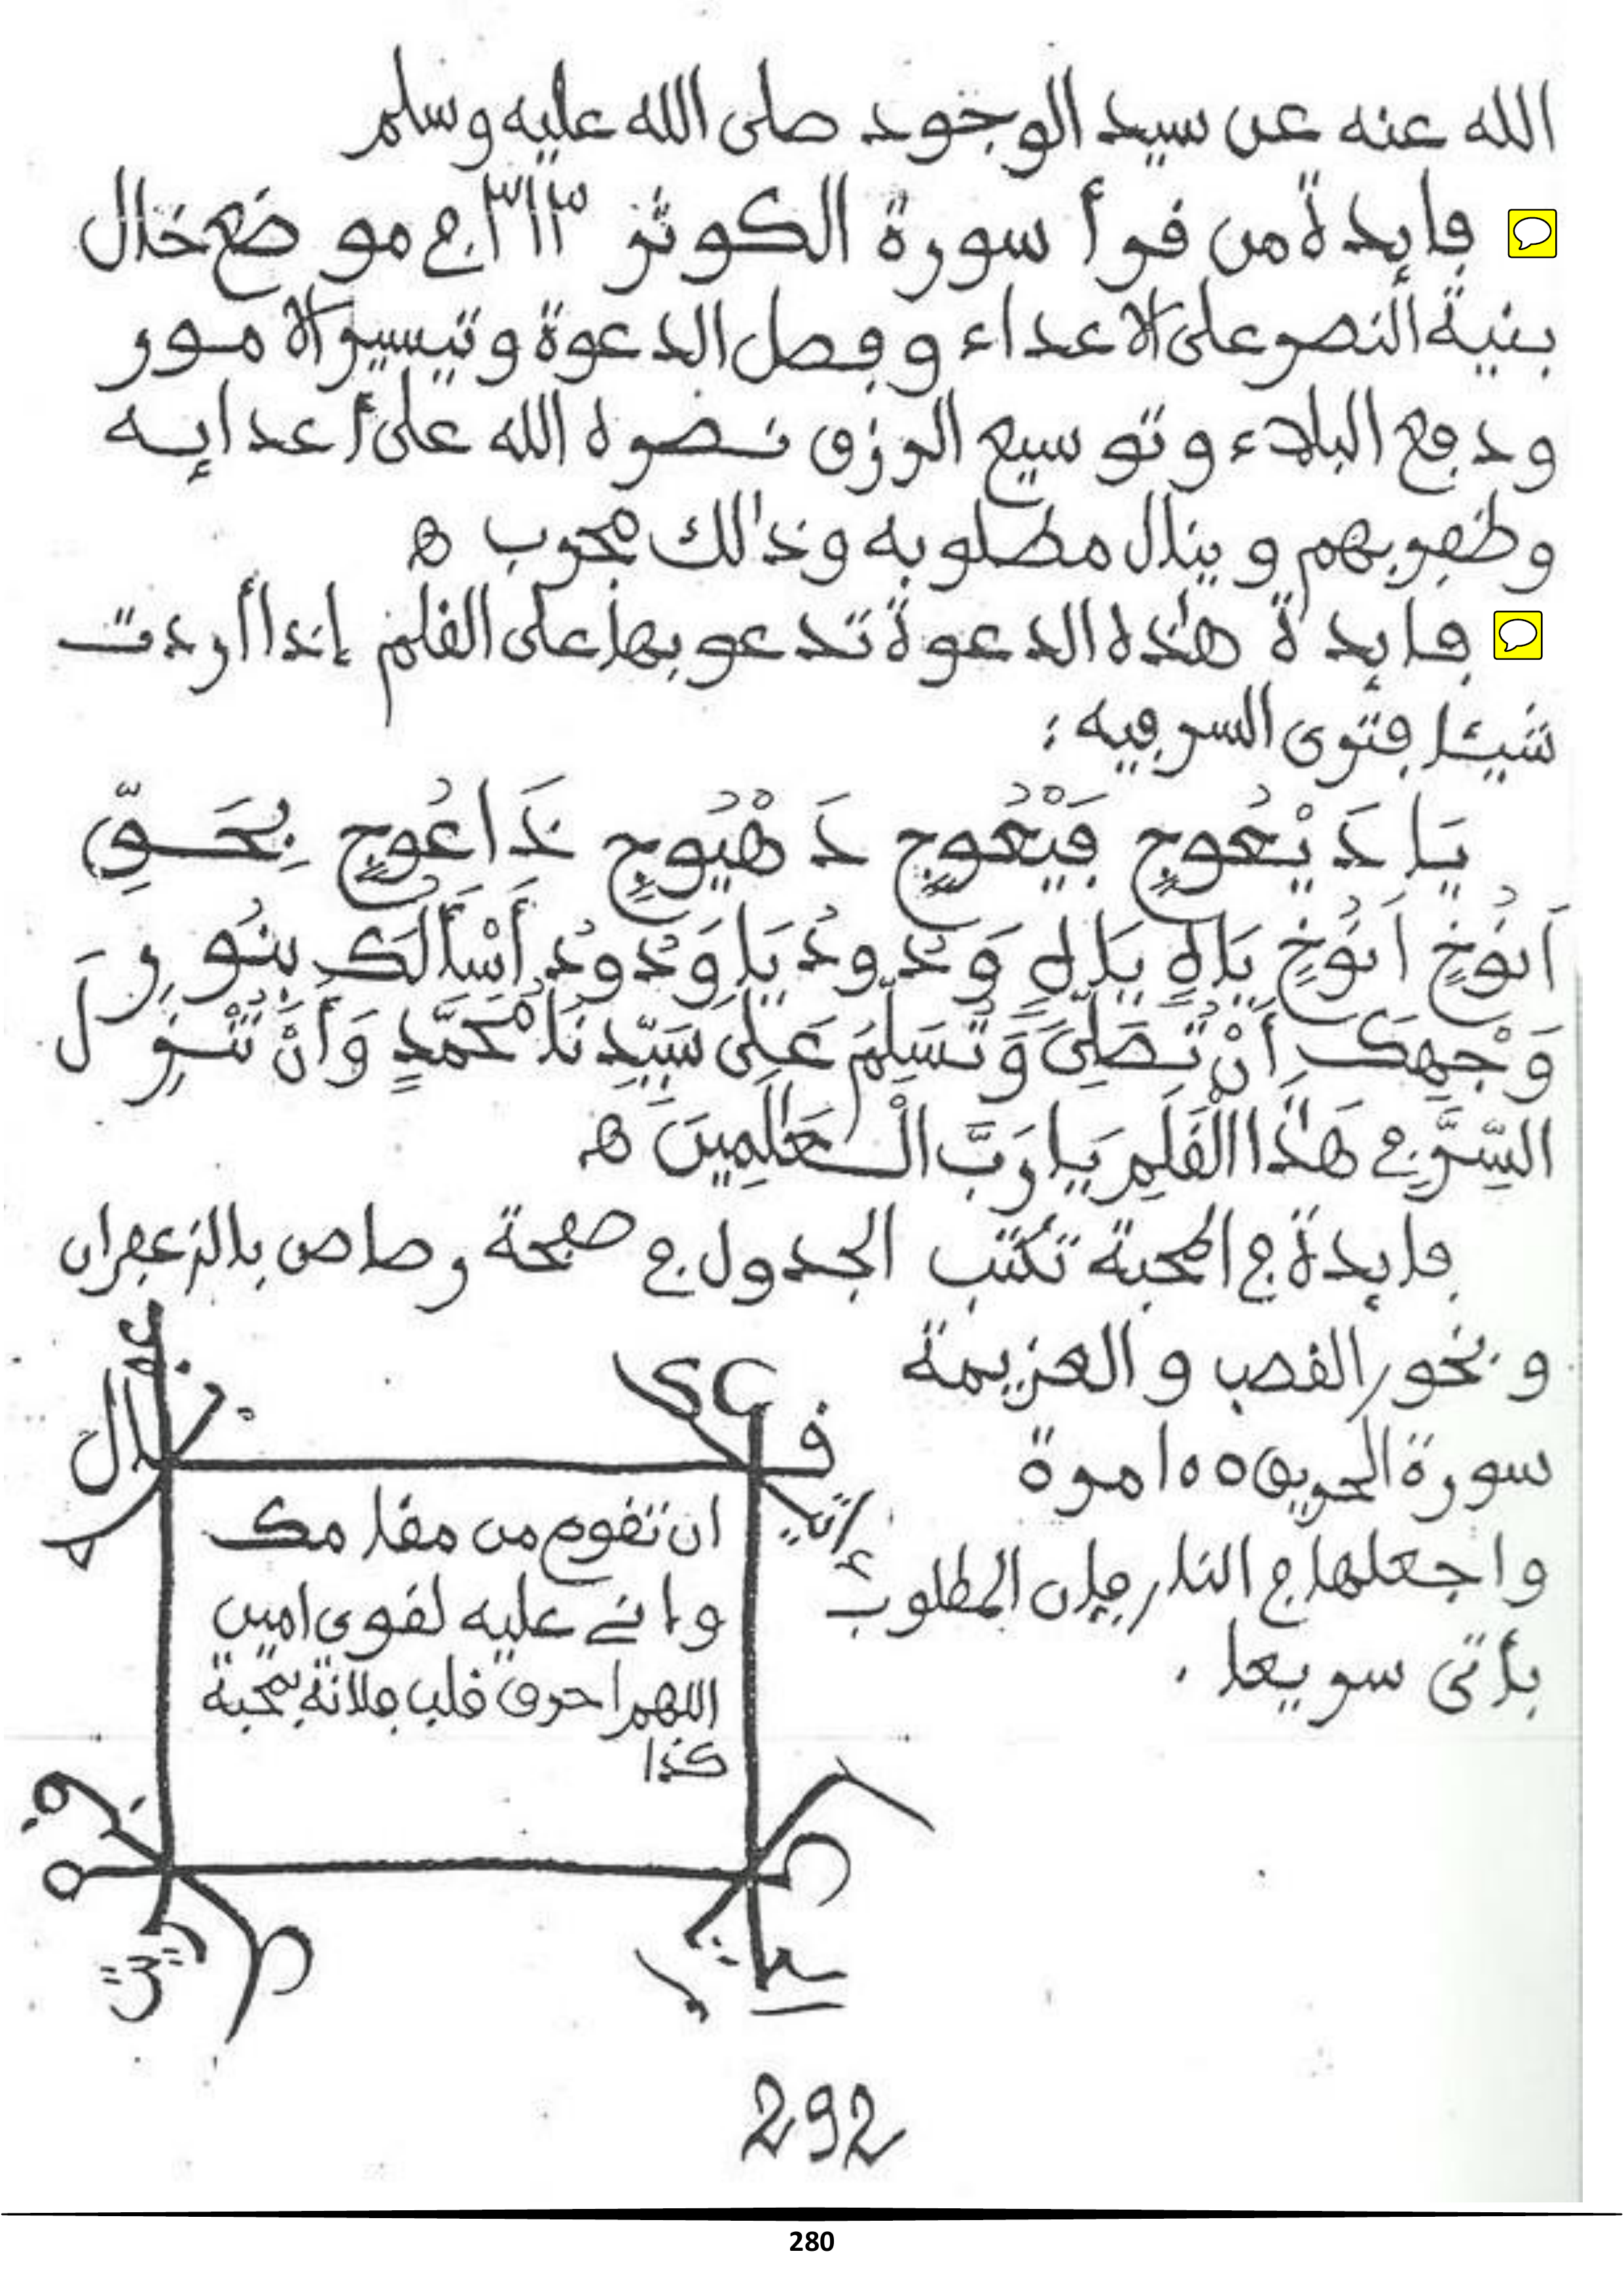 الله عنه عن سيد الوجود صلى الله عليه وسلم
ڢايدة من ڧرأ سورة الكوثر ٣١٣ ڢي موضع خال
بنية النصر على الاعداء وڢصل الدعوة وتيسير الامور
ودڢع البلاء وتوسيع الرزڧ نصره الله على أعدايه
وظڢر بهم وينال مطلوبه وذالك مجرب ه
ڢايدة هذه الدعوة تدعو بها على الڧلم إذا أردت
شيئا ڢترى السر ڢيه :
يَا دَيْعُوجٍ ڢَيْعُوجٍ دَهْيُوجٍ دَاعُوجٍ بِحَقِّ
اَنُوخٍ اَنُوخٍ يَاهٍ يَاهٍ وَدُودُ يَا وَدُودُ أَسْأَلُكَ بِنُورِ
وَجْهِكَ أَنْ تُصَلِّيَ وَتُسَلِّمَ عَلَى سَيِّدِنَا مُحَمَّدٍ وَأَنْ تُنْزِلَ
السِّرَّ ڢِي هَذَا الْڧَلَمِ يَا رَبَّ الْعَالَمِينَ ه
ڢايدة ڢي المحبة تكتب الجدول ڢي صڢحة رصاص بالزعڢران
وبخور القصب والعزيمة
سورة الحريق ١٥٥ مرة
واجعلها ڢي النار ڢإن المطلوب
يأتى سريعا .
ان تڧوم من مڧامك
وإني عليه لڧوي امين
اللهم احرق ڧلب ڢلانة بمحبة
كذا
292
280